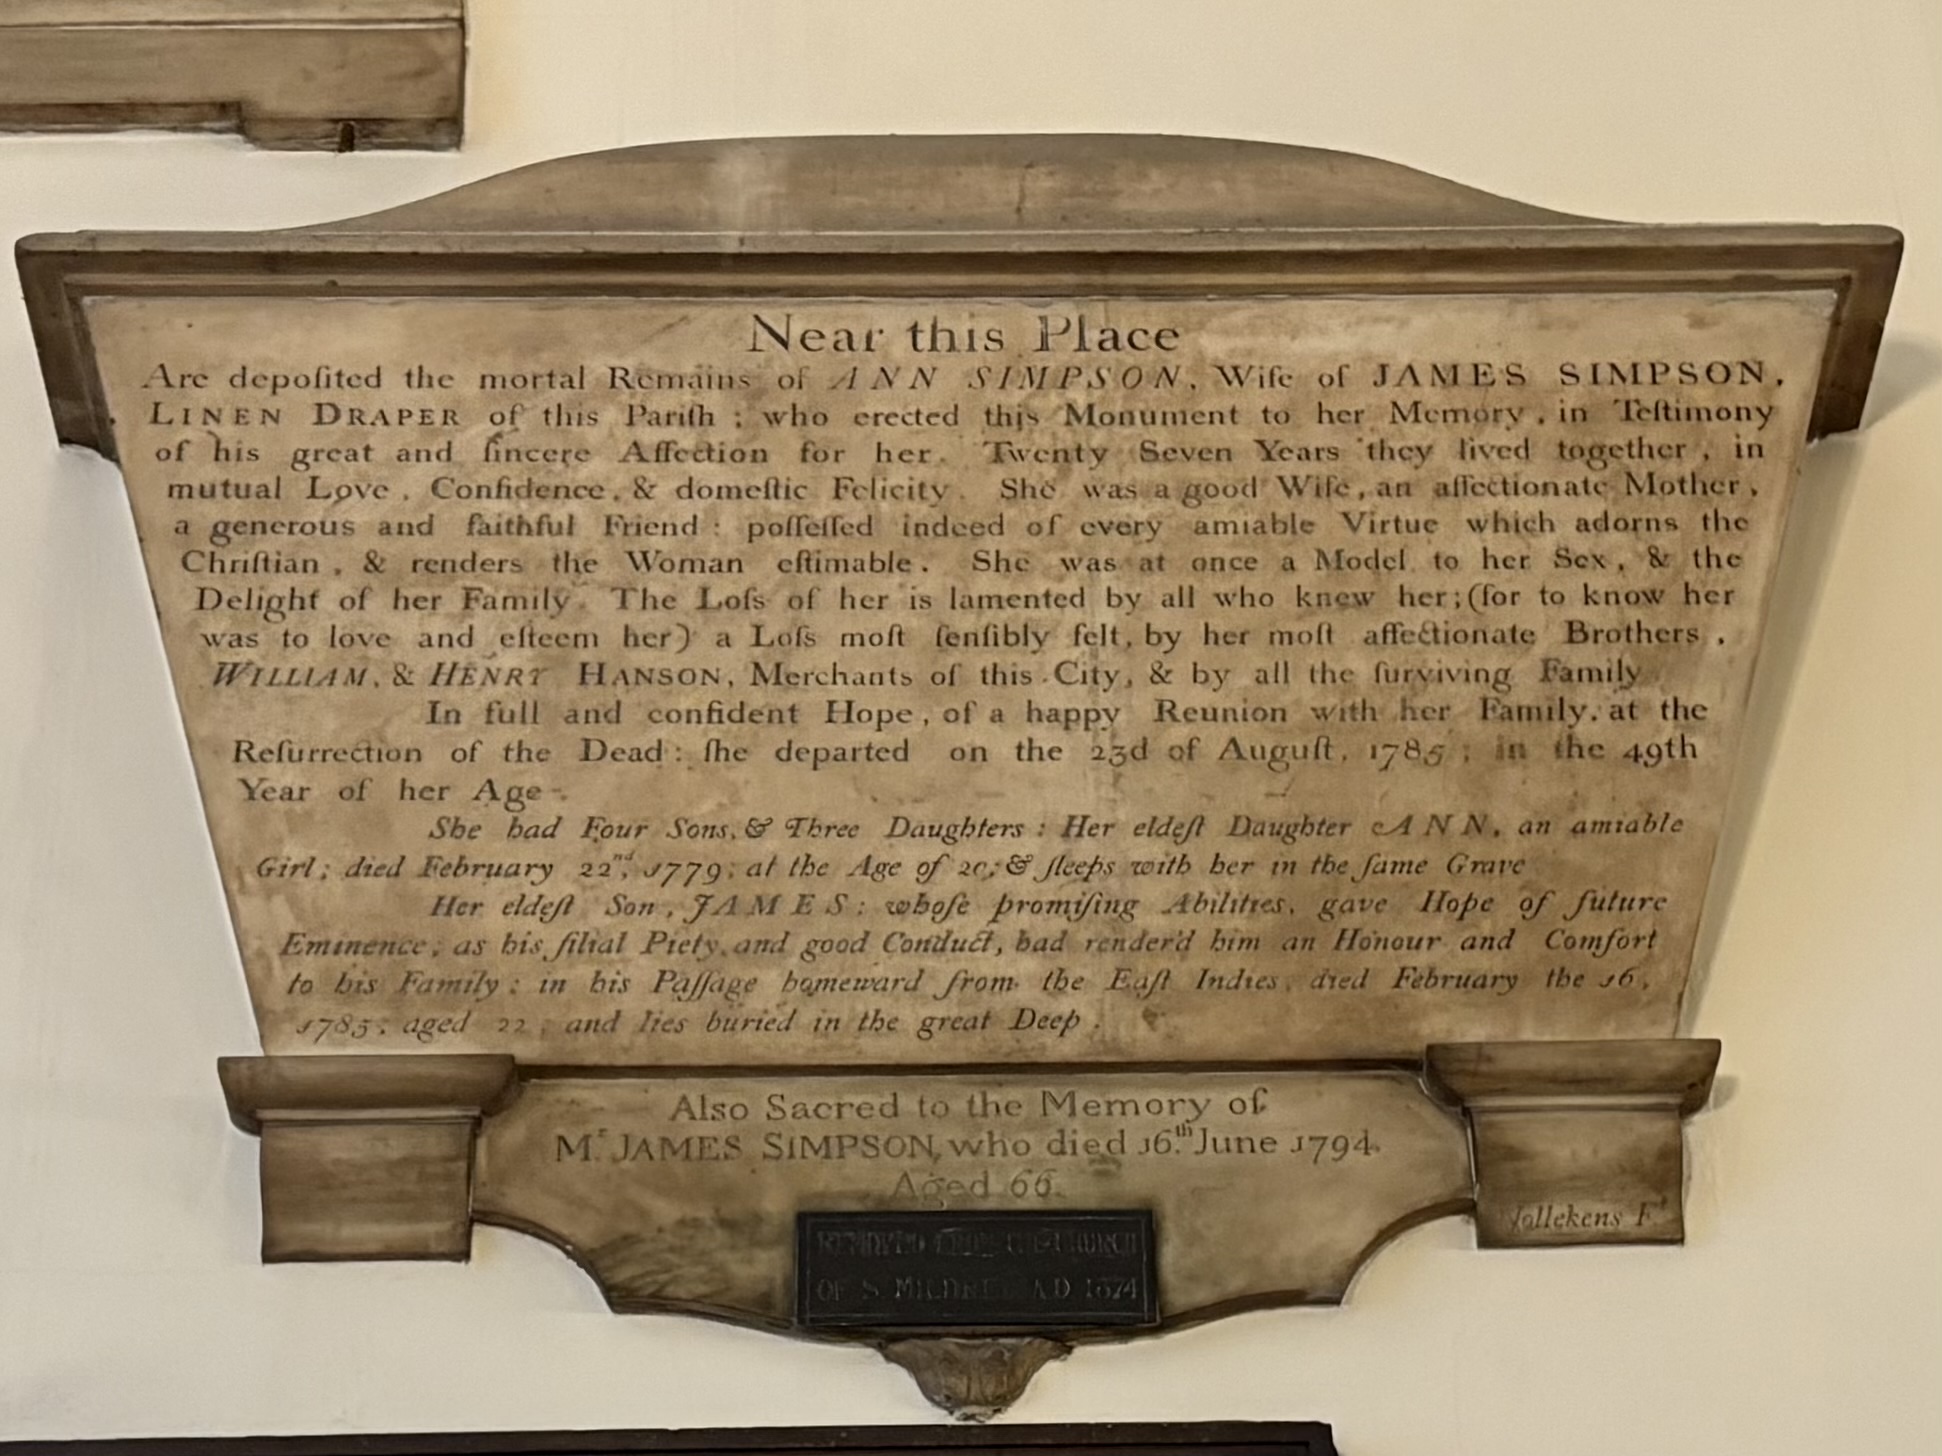 Near this Place
Are depoſited the mortal Remains of ANN SIMPSON, Wife of JAMES SIMPSON,
LINEN DRAPER of this Pariſh; who erected this Monument to her Memory, in Teſtimony
of his great and ſincere Affection for her. Twenty Seven Years they lived together, in
mutual Love, Confidence, & domeſtic Felicity. She was a good Wife, an affectionate Mother,
a generous and faithful Friend: poſſeſſed indeed of every amiable Virtue which adorns the
Chriſtian, & renders the Woman eſtimable. She was at once a Model to her Sex, & the
Delight of her Family. The Loſs of her is lamented by all who knew her; (for to know her
was to love and eſteem her) a Loſs moſt ſenſibly felt, by her moſt affectionate Brothers,
WILLIAM, & HENRY HANSON, Merchants of this City, & by all the ſurviving Family
In full and confident Hope, of a happy Reunion with her Family, at the
Reſurrection of the Dead: ſhe departed on the 23d of Auguſt, 1785; in the 49th
Year of her Age.
She had Four Sons, & Three Daughters: Her eldeſt Daughter ANN, an amiable
Girl; died February 22nd, 1779; at the Age of 20; & ſleeps with her in the ſame Grave
Her eldeſt Son, JAMES: whoſe promiſing Abilities, gave Hope of future
Eminence; as his filial Piety, and good Conduct, had render'd him an Honour and Comfort
to his Family: in his Paſſage homeward from the Eaſt Indies, died February the 16,
1785; aged 22; and lies buried in the great Deep.
Also Sacred to the Memory of
Mr. JAMES SIMPSON, who died 16th. June 1794.
Aged 66.
Nollekens Ft.
REMOVED FROM THE CHURCH
OF S. MILDRED A.D. 1874